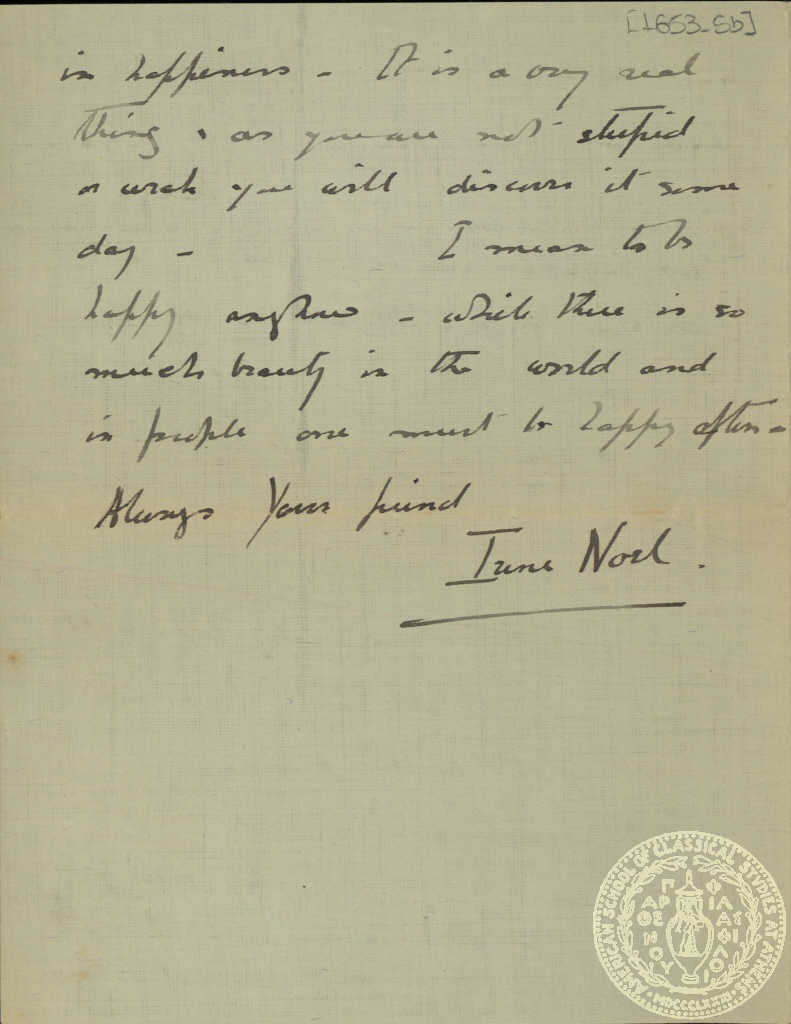 [1653_5b]
in happiness - It is a very real
thing & as you are not stupid
or weak you will discover it some
day - I mean to be
happy anyhow - while there is so
much beauty in the world and
in people one must be happy often -
Always Your friend
Irene Noel.
AMERICAN SCHOOL OF CLASSICAL STUDIES AT ATHENS
ΠΑΡΘΕΝΟΥ ΦΙΛΑΣ ΦΙΛΟΙ
MDCCCLXXXI